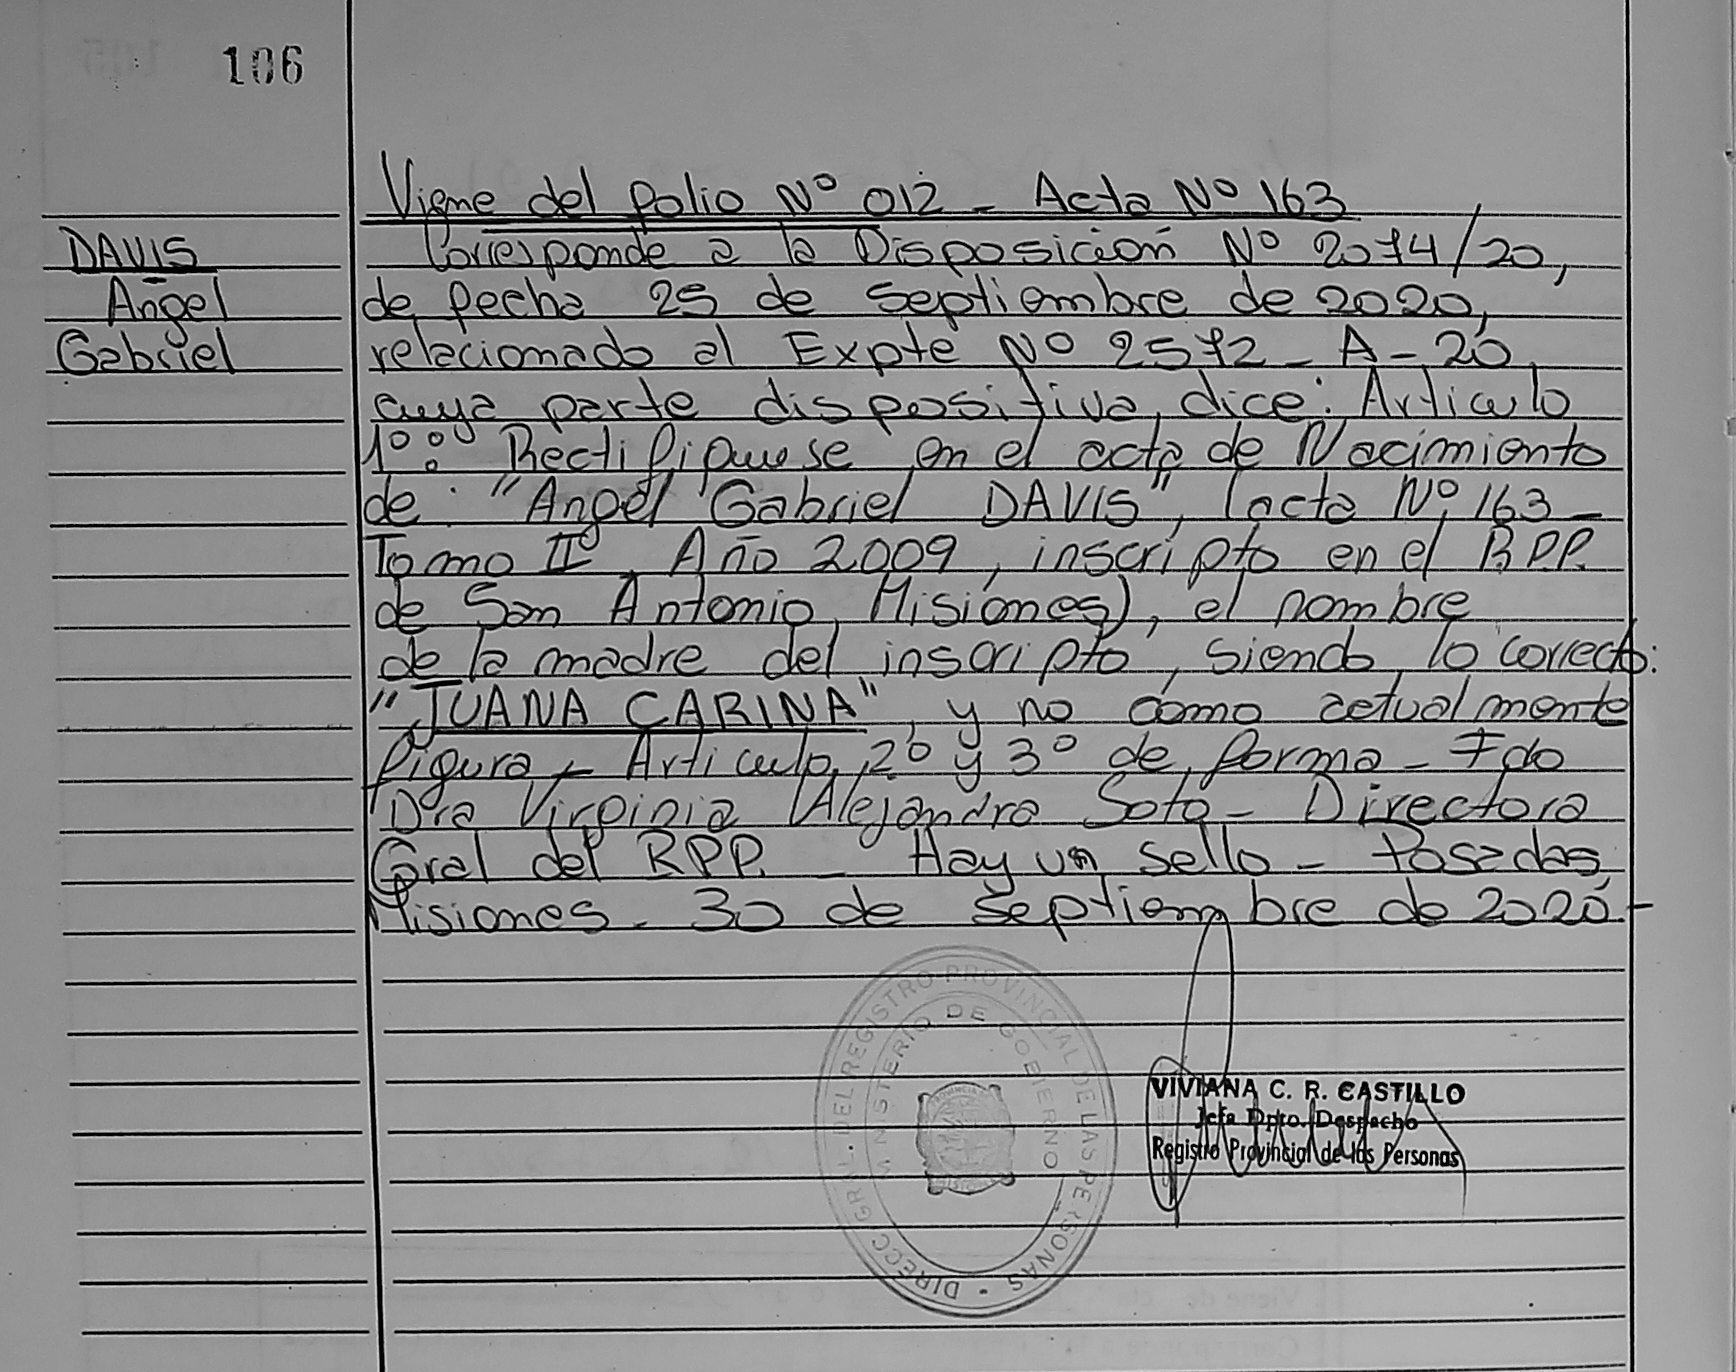 106
Viene del folio Nº 012 - Acta Nº 163
DAVIS
Angel
Gabriel
Corresponde a la Disposición Nº 2074/20,
de fecha 25 de septiembre de 2020,
relacionado al Expte Nº 2572 - A - 20,
cuya parte dispositiva, dice: Articulo
1º: Rectifiquese en el acta de Nacimiento
de: "Angel Gabriel DAVIS", (acta Nº 163 -
Tomo IIº, Año 2009, inscripto en el RPP.
de San Antonio, Misiones), el nombre
de la madre del inscripto, siendo lo correcto:
"JUANA CARINA", y no como actualmente
figura - Articulo 2º y 3º de forma - Fdo
Dra Virginia Alejandra Soto - Directora
Gral del RPP. - Hay un sello - Posadas
Misiones - 30 de septiembre de 2020.-
DIRECC. GRAL. DEL REGISTRO PROVINCIAL DE LAS PERSONAS
MINISTERIO DE GOBIERNO
VIVIANA C. R. CASTILLO
Jefa Dpto. Despacho
Registro Provincial de las Personas